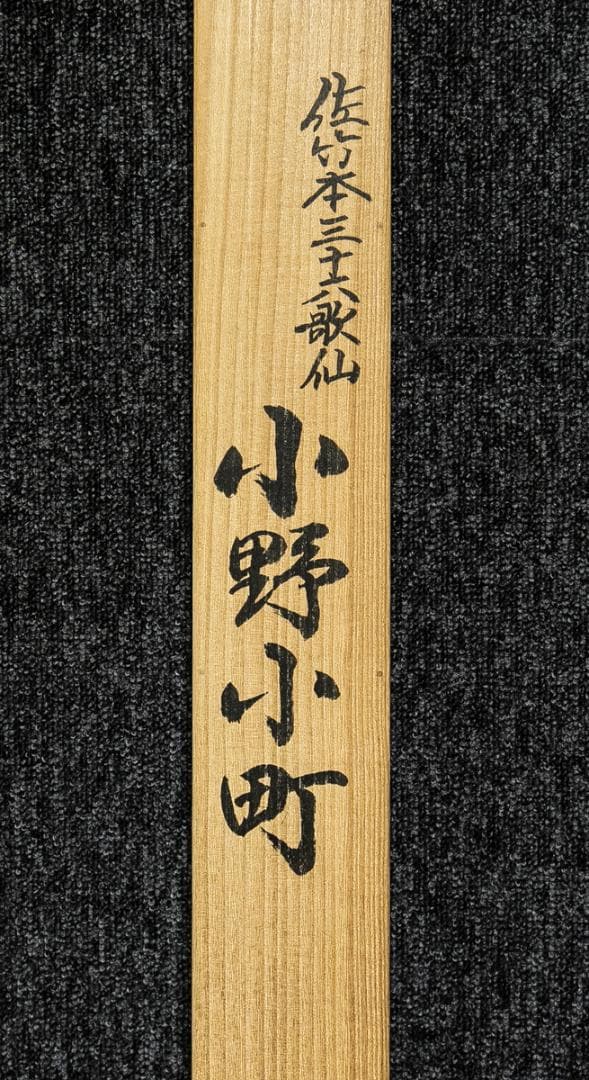 佐竹本三十六歌仙
小野小町